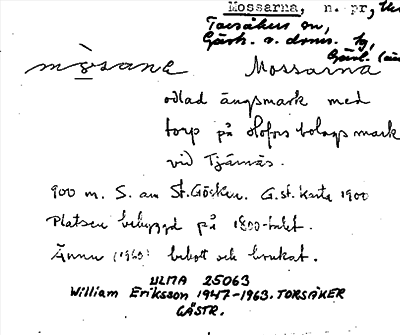 Mossarna, n. pr,
Torsåkers sn,
Gästr. ö. doms. hg,
Gävl. län
mo̊sanε Mossarna
odlad ängsmark med
torp på Hofors bolags mark
vid Tjärnäs.
900 m. S. om St. Gösken. G. st. Karta 1900
Platsen bebyggd på 1800-talet.
Ännu (1960) bebott och brukat.
ULMA 25063
William Eriksson 1947-1963. TORSÅKER
GÄSTR.